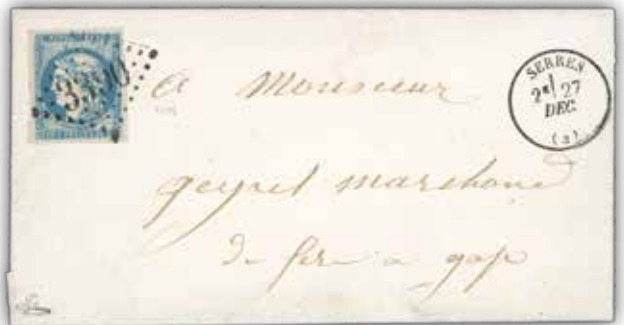 3390
SERRES
2e/ 27
DEC.
(a)
a Monsieur
geyrel marchand
de fer a gap